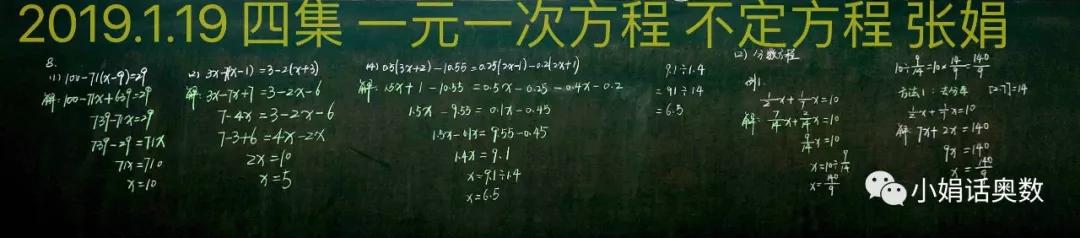 2019.1.19 四集 一元一次方程 不定方程 张娟
8.
(1) 100-71(x-9)=29
解: 100-71x+639=29
739-71x=29
739-29=71x
71x=710
x=10
(2) 3x-7(x-1)=3-2(x+3)
解: 3x-7x+7=3-2x-6
7-4x=3-2x-6
7-3+6=4x-2x
2x=10
x=5
(4) 0.5(3x+2)-10.55=0.25(2x-1)-0.2(2x+1)
解: 1.5x+1-10.55=0.5x-0.25-0.4x-0.2
1.5x-9.55=0.1x-0.45
1.5x-0.1x=9.55-0.45
1.4x=9.1
x=9.1÷1.4
x=6.5
9.1÷1.4
=91÷14
=6.5
(2) 分数方程
例1.
1/2x+1/7x=10
解: 7/14x+2/14x=10
9/14x=10
x=10÷9/14
x=140/9
10÷9/14=10×14/9=140/9
方法1: 去分母 [2,7]=14
1/2x+1/7x=10
解: 7x+2x=140
9x=140
x=140/9
小娟话奥数